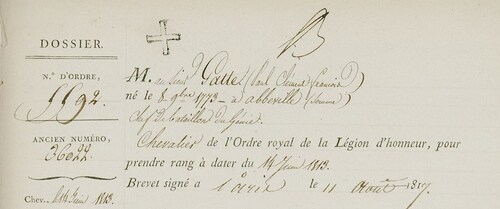 DOSSIER.
N.º D'ORDRE,
5592.
ANCIEN NUMÉRO,
36022
Chev., le 14 Juin 1813.
M. Gatte (Paul Clément François)
né le 8 9bre 1773 à abbeville (Somme)
Chef de bataillon du Génie.
Chevalier de l'Ordre royal de la Légion d'honneur, pour
prendre rang à dater du 14 Juin 1813.
Brevet signé a Paris le 11 Août 1817.